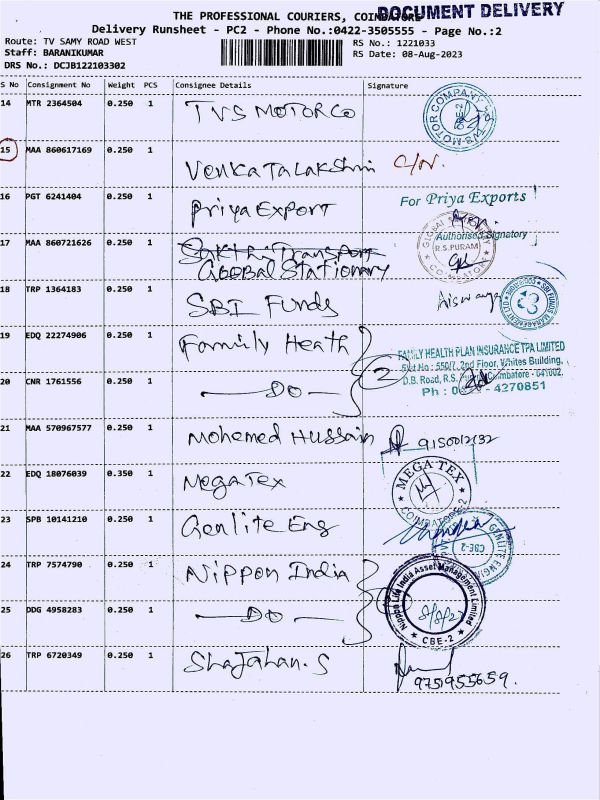 THE PROFESSIONAL COURIERS, COIMBATORE
DOCUMENT DELIVERY
Delivery Runsheet - PC2 - Phone No.:0422-3505555 - Page No.:2
Route: TV SAMY ROAD WEST
RS No.: 1221033
Staff: BARANIKUMAR
RS Date: 08-Aug-2023
DRS No.: DCJB122103302
S No Consignment No Weight PCS Consignee Details Signature
14 MTR 2364504 0.250 1 TVS MOTOR CO
TVS-MOTOR COMPANY CBE-2
15 MAA 860617169 0.250 1 Venkatalakshmi C/N.
16 PGT 6241404 0.250 1 Priya Export
For Priya Exports
Authorised Signatory
17 MAA 860721626 0.250 1 Sakthi Transport
Goobal Stationary
GLOBAL STATIONERY R.S.PURAM COIMBATORE
18 TRP 1364183 0.250 1 SBI Funds Aiswarya
SBI FUNDS MANAGEMENT LTD
19 EDQ 22274906 0.250 1 Family Heath
2
FAMILY HEALTH PLAN INSURANCE TPA LIMITED
2nd Floor, Whites Building,
D.B. Road, R.S. Coimbatore - 641002.
Ph : - 4270851
20 CNR 1761556 0.250 1 — DO —
21 MAA 570967577 0.250 1 Mohemed Hussain
22 EDQ 18076039 0.350 1 MegaTex
MEGA TEX COIMBATORE-2
23 SPB 10141210 0.250 1 Genlite Eng
GENLITE ENGI CBE-2
24 TRP 7574790 0.250 1 Nippon India
Nippon Life India Asset Management Limited
8/8/23
CBE-2
25 DDG 4958283 0.250 1 — DO —
26 TRP 6720349 0.250 1 Shajahan.S
9751955659.